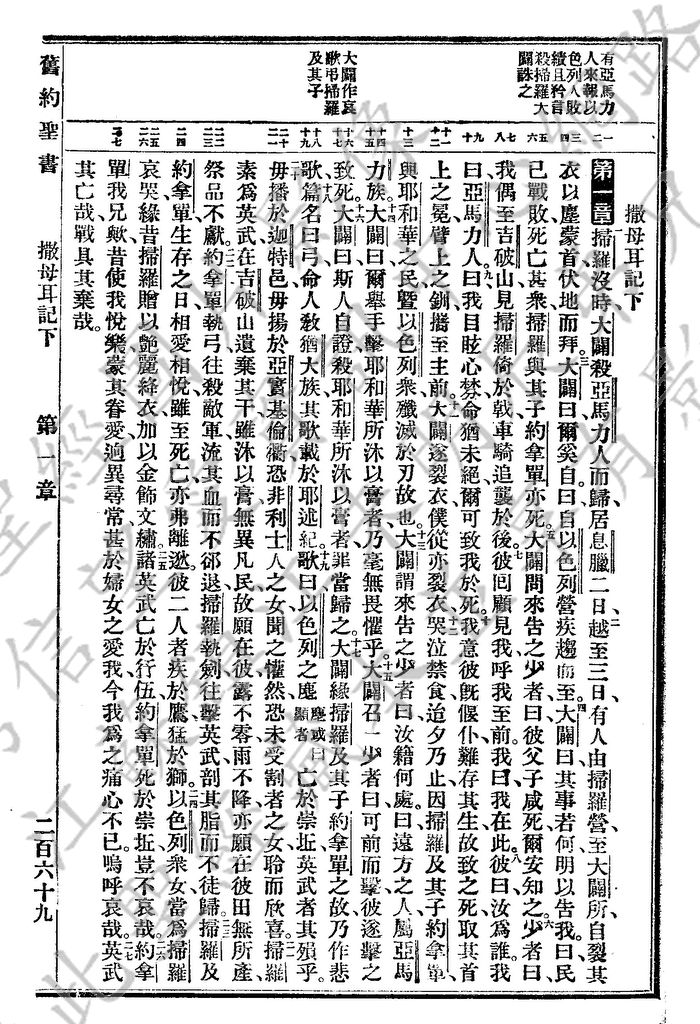 舊約聖書
撒母耳記下
第一章
二百六十九
有亞馬力
人來報以
色列人敗
績且矜言
殺掃羅大
闢誅之
大闢作哀
歌弔掃羅
及其子
撒母耳記下
第一章掃羅沒時大闢殺亞馬力人而歸居息臘二日越至三日有人由掃羅營至大闢所自裂其
衣以塵蒙首伏地而拜大闢曰爾奚自曰自以色列營疾趨而至大闢曰其事若何明以告我曰民
已戰敗死亡甚衆掃羅與其子約拿單亦死大闢問來告之少者曰彼父子咸死爾安知之少者曰
我偶至吉破山見掃羅倚於戟車騎追襲於後彼回顧見我呼我至前我曰我在此彼曰汝爲誰我
曰亞馬力人曰我目眩心棼命猶未絕爾可致我於死我意彼既偃仆難存其生故致之死取其首
上之冕臂上之釧攜至主前大闢遂裂衣僕從亦裂衣哭泣禁食迨夕乃止因掃羅及其子約拿單
與耶和華之民暨以色列衆殲滅於刃故也大闢謂來告之少者曰汝籍何處曰遠方之人屬亞馬
力族大闢曰爾舉手擊耶和華所沐以膏者乃毫無畏懼乎大闢召一少者曰可前而擊彼遂擊之
致死大闢曰斯人自證殺耶和華所沐以膏者罪當歸之大闢緣掃羅及其子約拿單之故乃作悲
歌篇名曰弓命人敎猶大族其歌載於耶述紀歌曰以色列之麈麈或曰顯者亡於崇坵英武者其殞乎
毋播於迦特邑毋揚於亞實基倫衢恐非利士人之女聞之懽然恐未受割者之女聆而欣喜掃羅
素爲英武在吉破山遺棄其干雖沐以膏無異凡民故願在彼露不零雨不降亦願在彼田無所產
祭品不獻約拿單執弓往殺敵軍流其血而不卻退掃羅執劍往擊英武剖其脂而不徒歸掃羅及
約拿單生存之日相愛相悅雖至死亡亦弗離逖彼二人者疾於鷹猛於獅以色列衆女當爲掃羅
哀哭緣昔掃羅贈以艷麗絳衣加以金飾文繡諸英武亡於行伍約拿單死於崇坵豈不哀哉約拿
單我兄歟昔使我悅樂蒙其眷愛逈異尋常甚於婦女之愛我今我爲之痛心不已嗚呼哀哉英武
其亡哉戰具其棄哉。